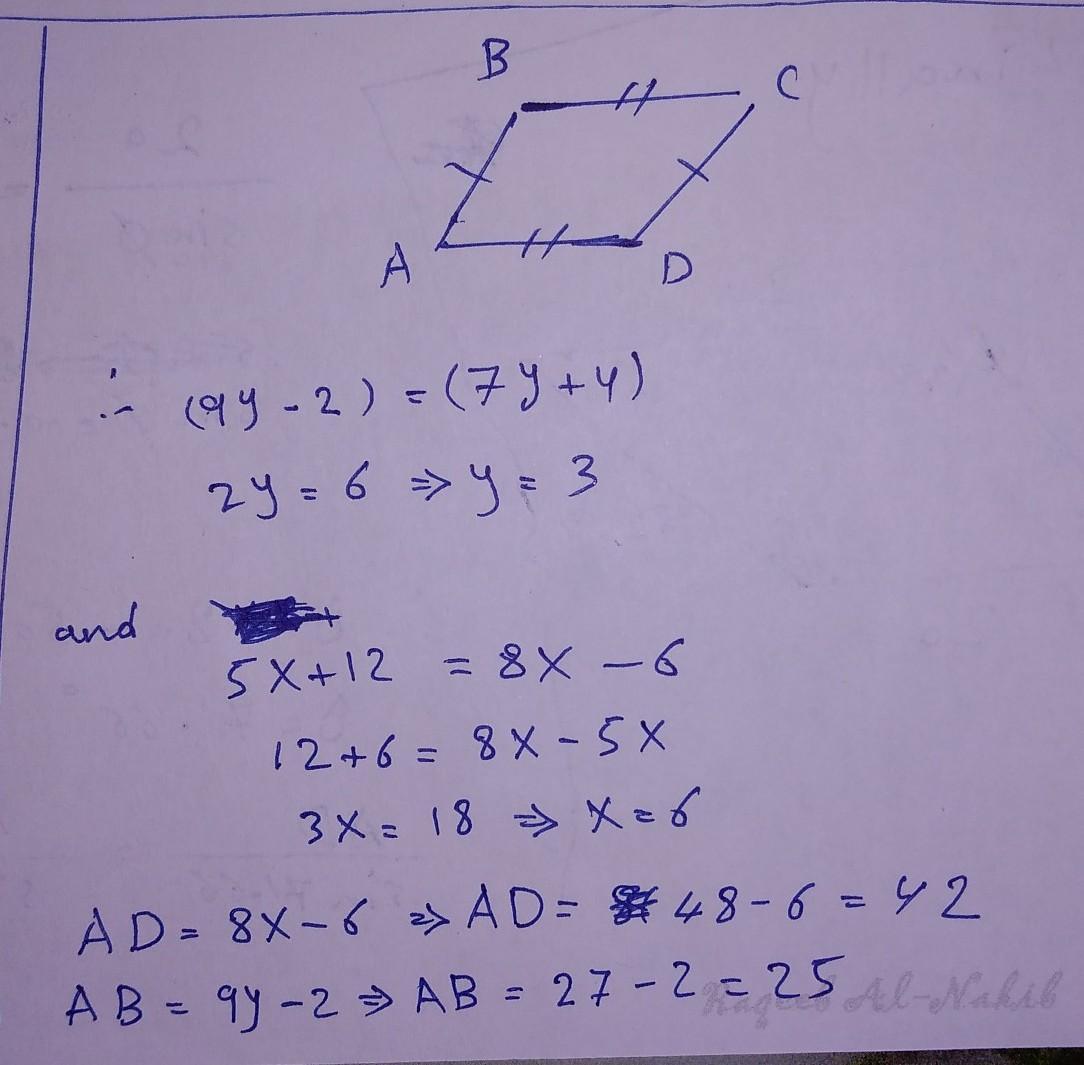 B
C
A
D
∴ (9y - 2) = (7y + 4)
2y = 6 ⇒ y = 3
and
5X + 12 = 8X - 6
12 + 6 = 8X - 5X
3X = 18 ⇒ X = 6
AD = 8X - 6 ⇒ AD = 48 - 6 = 42
AB = 9y - 2 ⇒ AB = 27 - 2 = 25
Al-Nahib